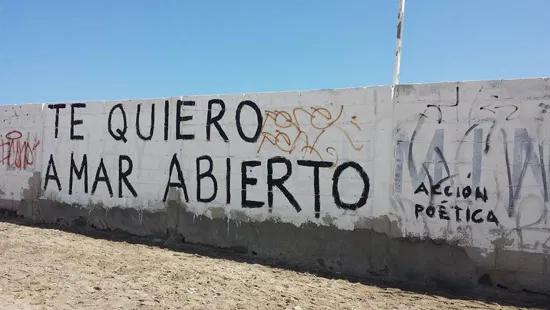 TE QUIERO
AMAR ABIERTO
ACCIÓN
POÉTICA